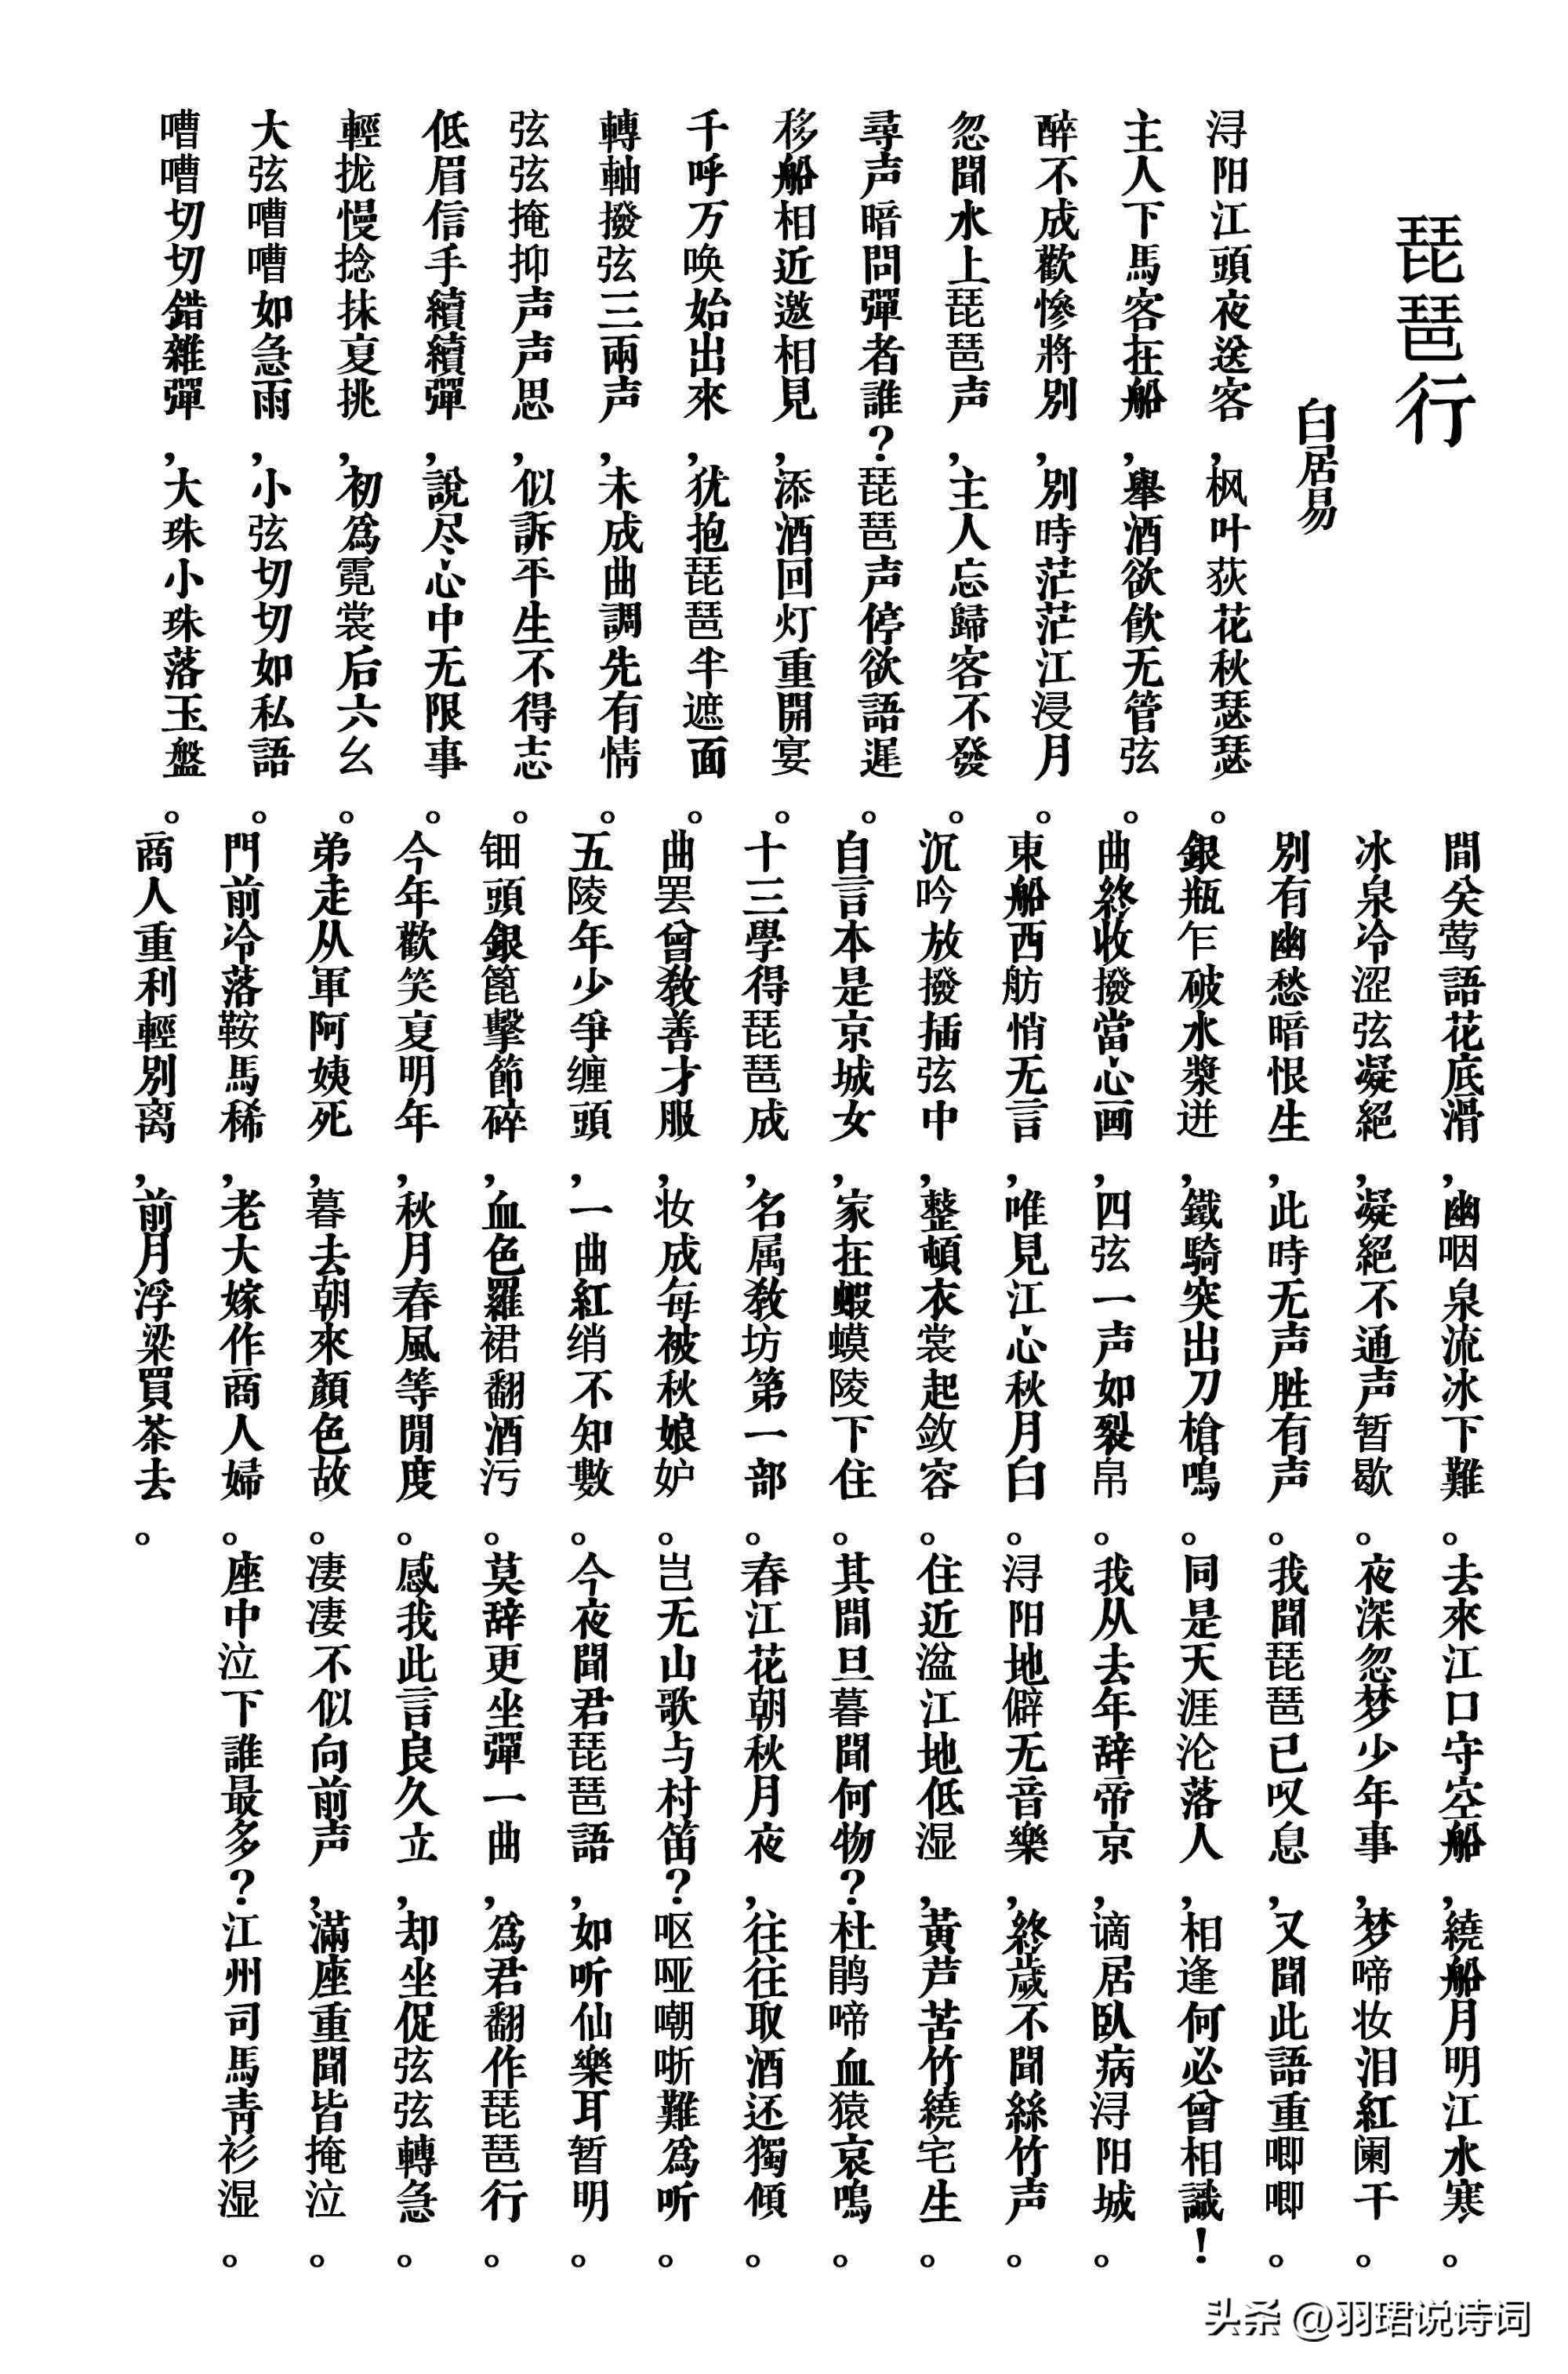 琵琶行
白居易
浔阳江頭夜送客，枫叶荻花秋瑟瑟。
主人下馬客在船，舉酒欲飲无管弦。
醉不成歡慘將別，別時茫茫江浸月。
忽聞水上琵琶声，主人忘歸客不發。
尋声暗問彈者誰？琵琶声停欲語遲。
移船相近邀相見，添酒回灯重開宴。
千呼万唤始出來，犹抱琵琶半遮面。
轉軸撥弦三兩声，未成曲調先有情。
弦弦掩抑声声思，似訴平生不得志。
低眉信手續續彈，說尽心中无限事。
輕拢慢捻抹更挑，初爲霓裳后六幺。
大弦嘈嘈如急雨，小弦切切如私語。
嘈嘈切切錯雜彈，大珠小珠落玉盤。
間关莺語花底滑，幽咽泉流冰下難。
冰泉冷涩弦凝絕，凝絕不通声暂歇。
別有幽愁暗恨生，此時无声胜有声。
銀瓶乍破水漿迸，鐵騎突出刀槍鳴。
曲終收撥當心画，四弦一声如裂帛。
東船西舫悄无言，唯見江心秋月白。
沉吟放撥插弦中，整頓衣裳起敛容。
自言本是京城女，家在蝦蟆陵下住。
十三學得琵琶成，名属教坊第一部。
曲罢曾教善才服，妆成每被秋娘妒。
五陵年少爭缠頭，一曲紅绡不知數。
钿頭銀篦擊節碎，血色羅裙翻酒污。
今年歡笑更明年，秋月春風等閒度。
弟走从軍阿姨死，暮去朝來顏色故。
門前冷落鞍馬稀，老大嫁作商人婦。
商人重利輕別离，前月浮梁買茶去。
去來江口守空船，繞船月明江水寒。
夜深忽梦少年事，梦啼妆泪紅阑干。
我聞琵琶已叹息，又聞此語重唧唧。
同是天涯沦落人，相逢何必曾相識！
我从去年辞帝京，谪居臥病浔阳城。
浔阳地僻无音樂，終歲不聞絲竹声。
住近湓江地低湿，黃芦苦竹繞宅生。
其間旦暮聞何物？杜鹃啼血猿哀鳴。
春江花朝秋月夜，往往取酒还獨傾。
岂无山歌与村笛？呕哑嘲哳難爲听。
今夜聞君琵琶語，如听仙樂耳暂明。
莫辞更坐彈一曲，爲君翻作琵琶行。
感我此言良久立，却坐促弦弦轉急。
凄凄不似向前声，滿座重聞皆掩泣。
座中泣下誰最多？江州司馬青衫湿。
头条 @羽珺说诗词